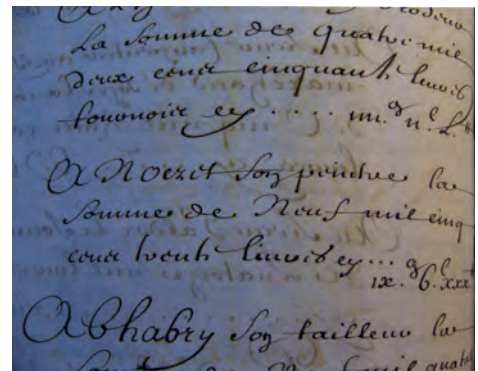 La somme de quatre mil
deux cens cinquante livres
tournois cy .... iiii.ᵐ ii.ᶜ L.ᵗ
A Nocret son peintre la
somme de Neuf mil cinq
cens trente livres cy ... ix.ᵐ v.ᶜ xxx
A Chabry son tailleur la